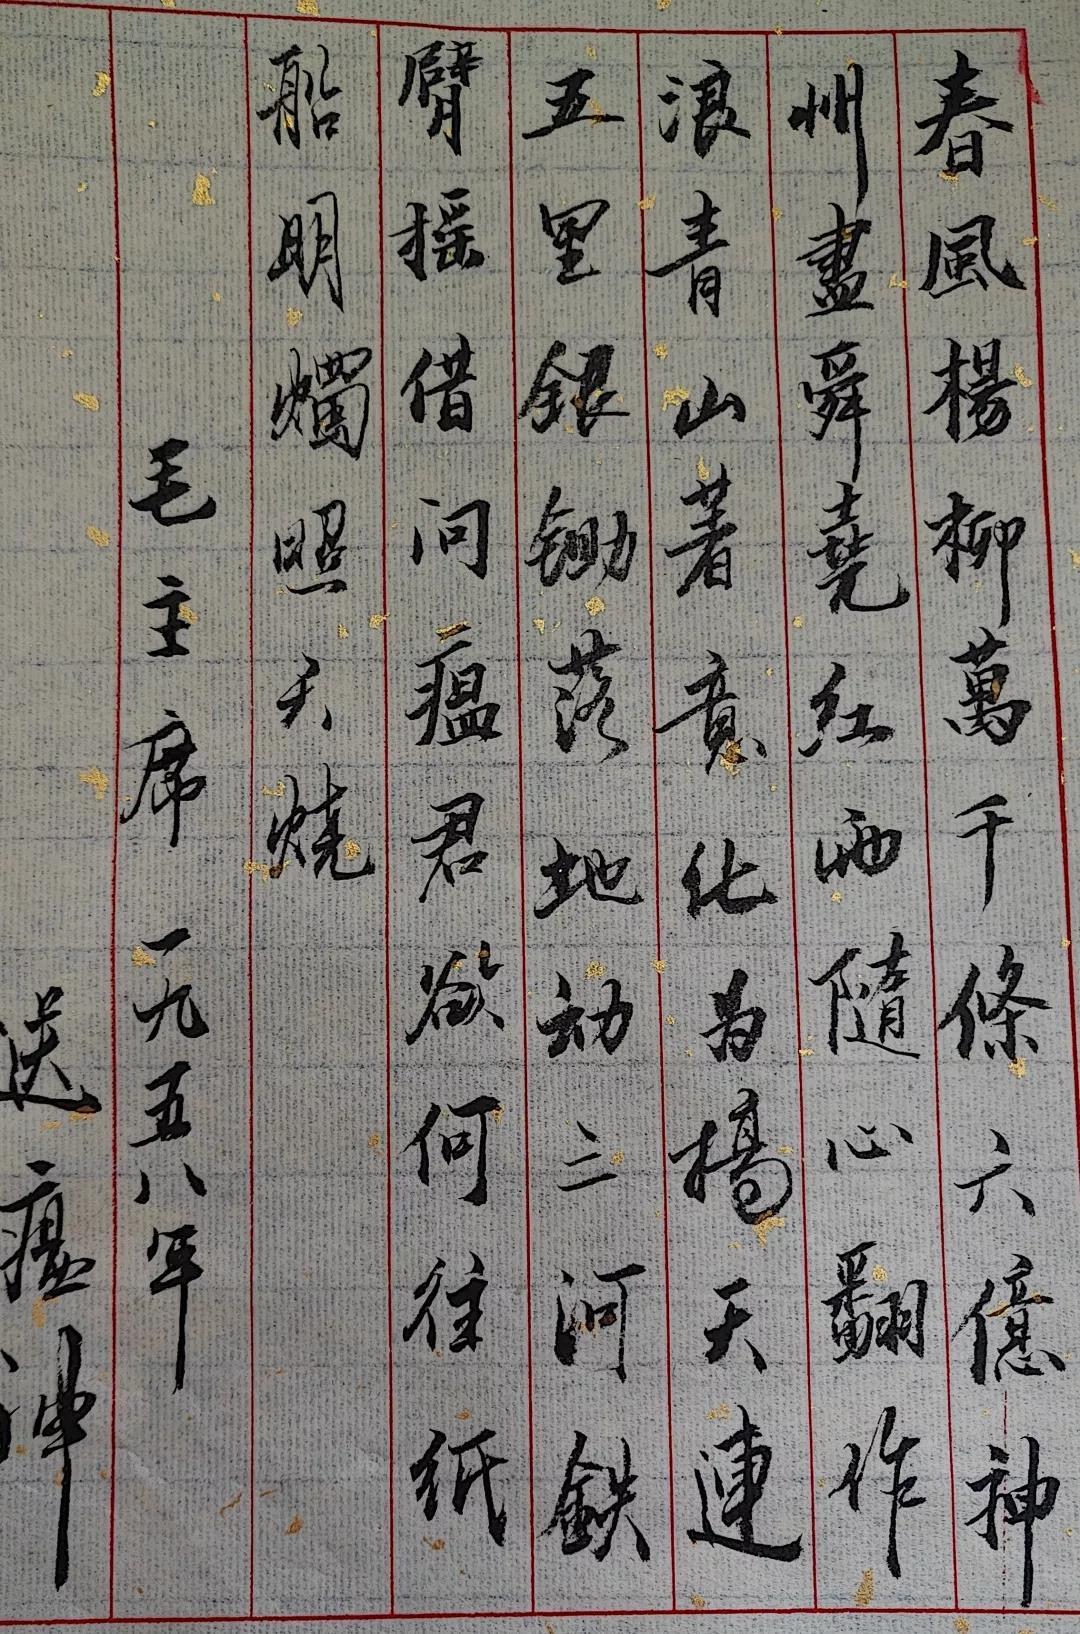 春風楊柳萬千條六億神
州盡舜堯紅雨隨心翻作
浪青山著意化为橋天連
五里銀锄落地动三河鉄
臂摇借问瘟君欲何往纸
船明燭照天燒
毛主席一九五八年
送瘟神